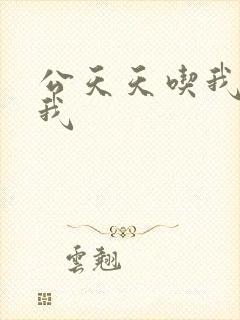 公天天喫我
我
雲翹